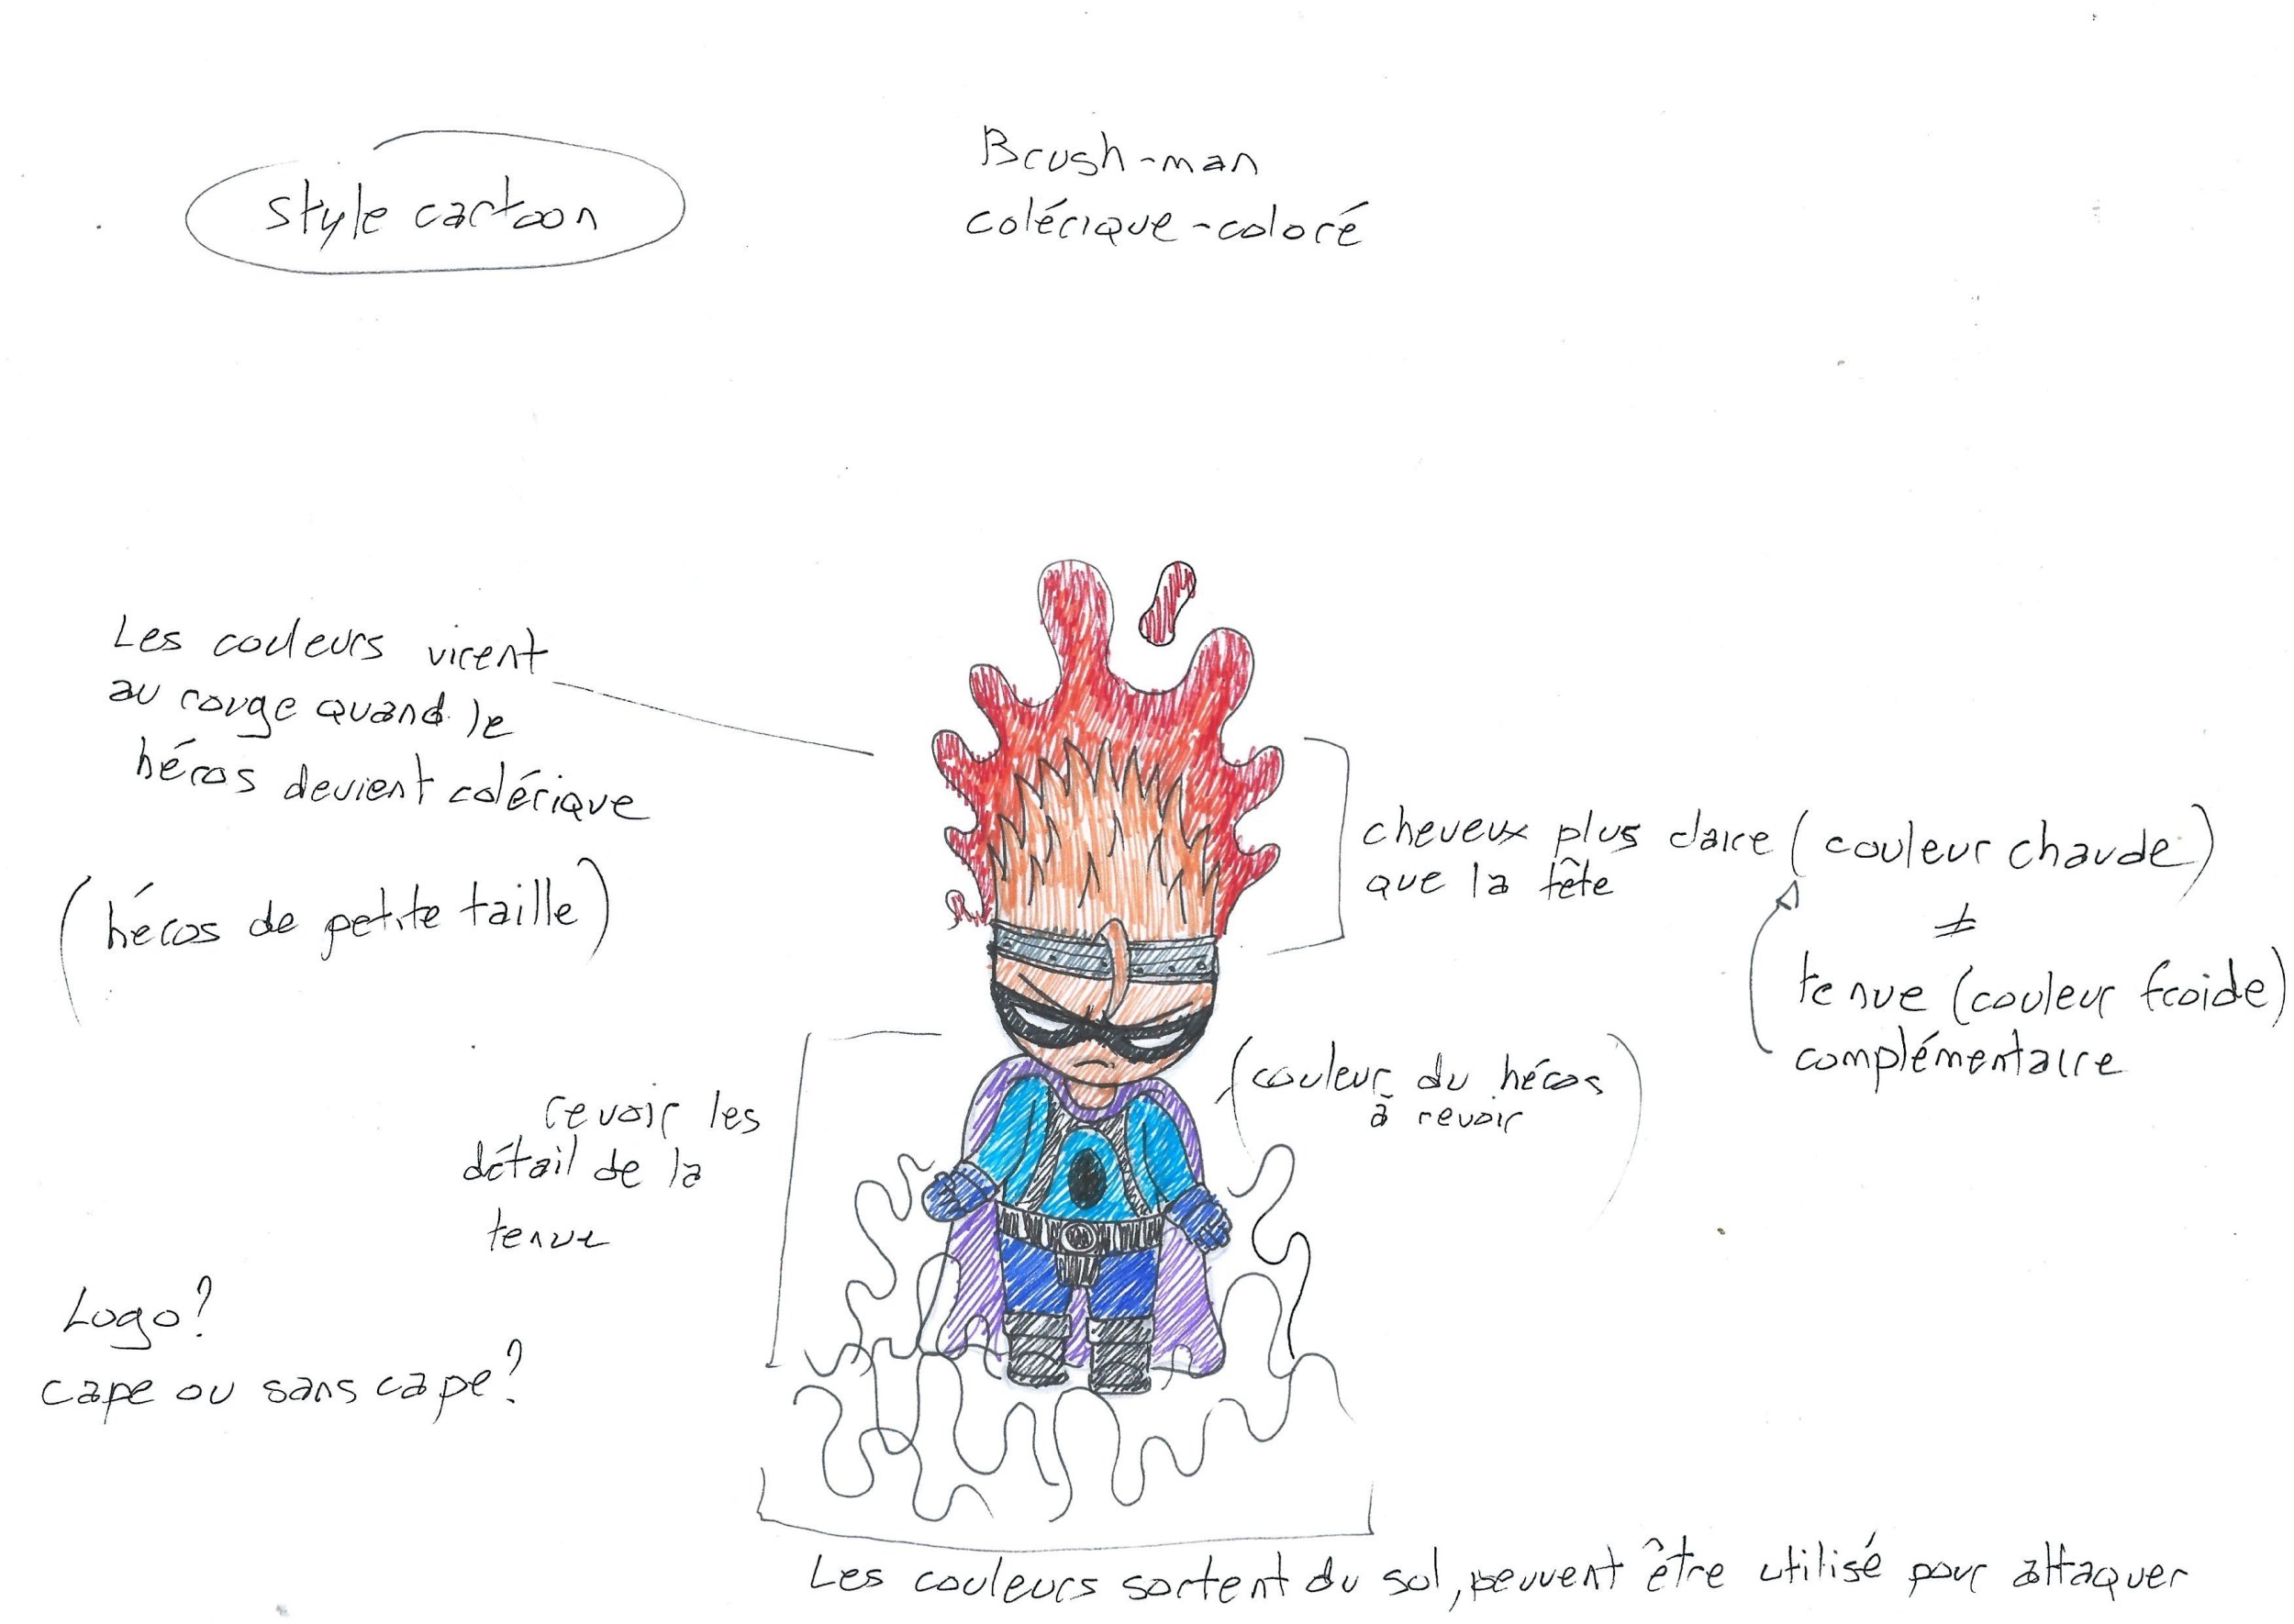 style cartoon
Brush-man
colérique-coloré
Les couleurs virent
au rouge quand le
héros devient colérique
(héros de petite taille)
cheveux plus claire (couleur chaude)
que la tête
≠
tenue (couleur froide)
complémentaire
(couleur du héros
à revoir)
revoir les
détail de la
tenue
Logo?
cape ou sans cape?
Les couleurs sortent du sol, peuvent être utilisé pour attaquer